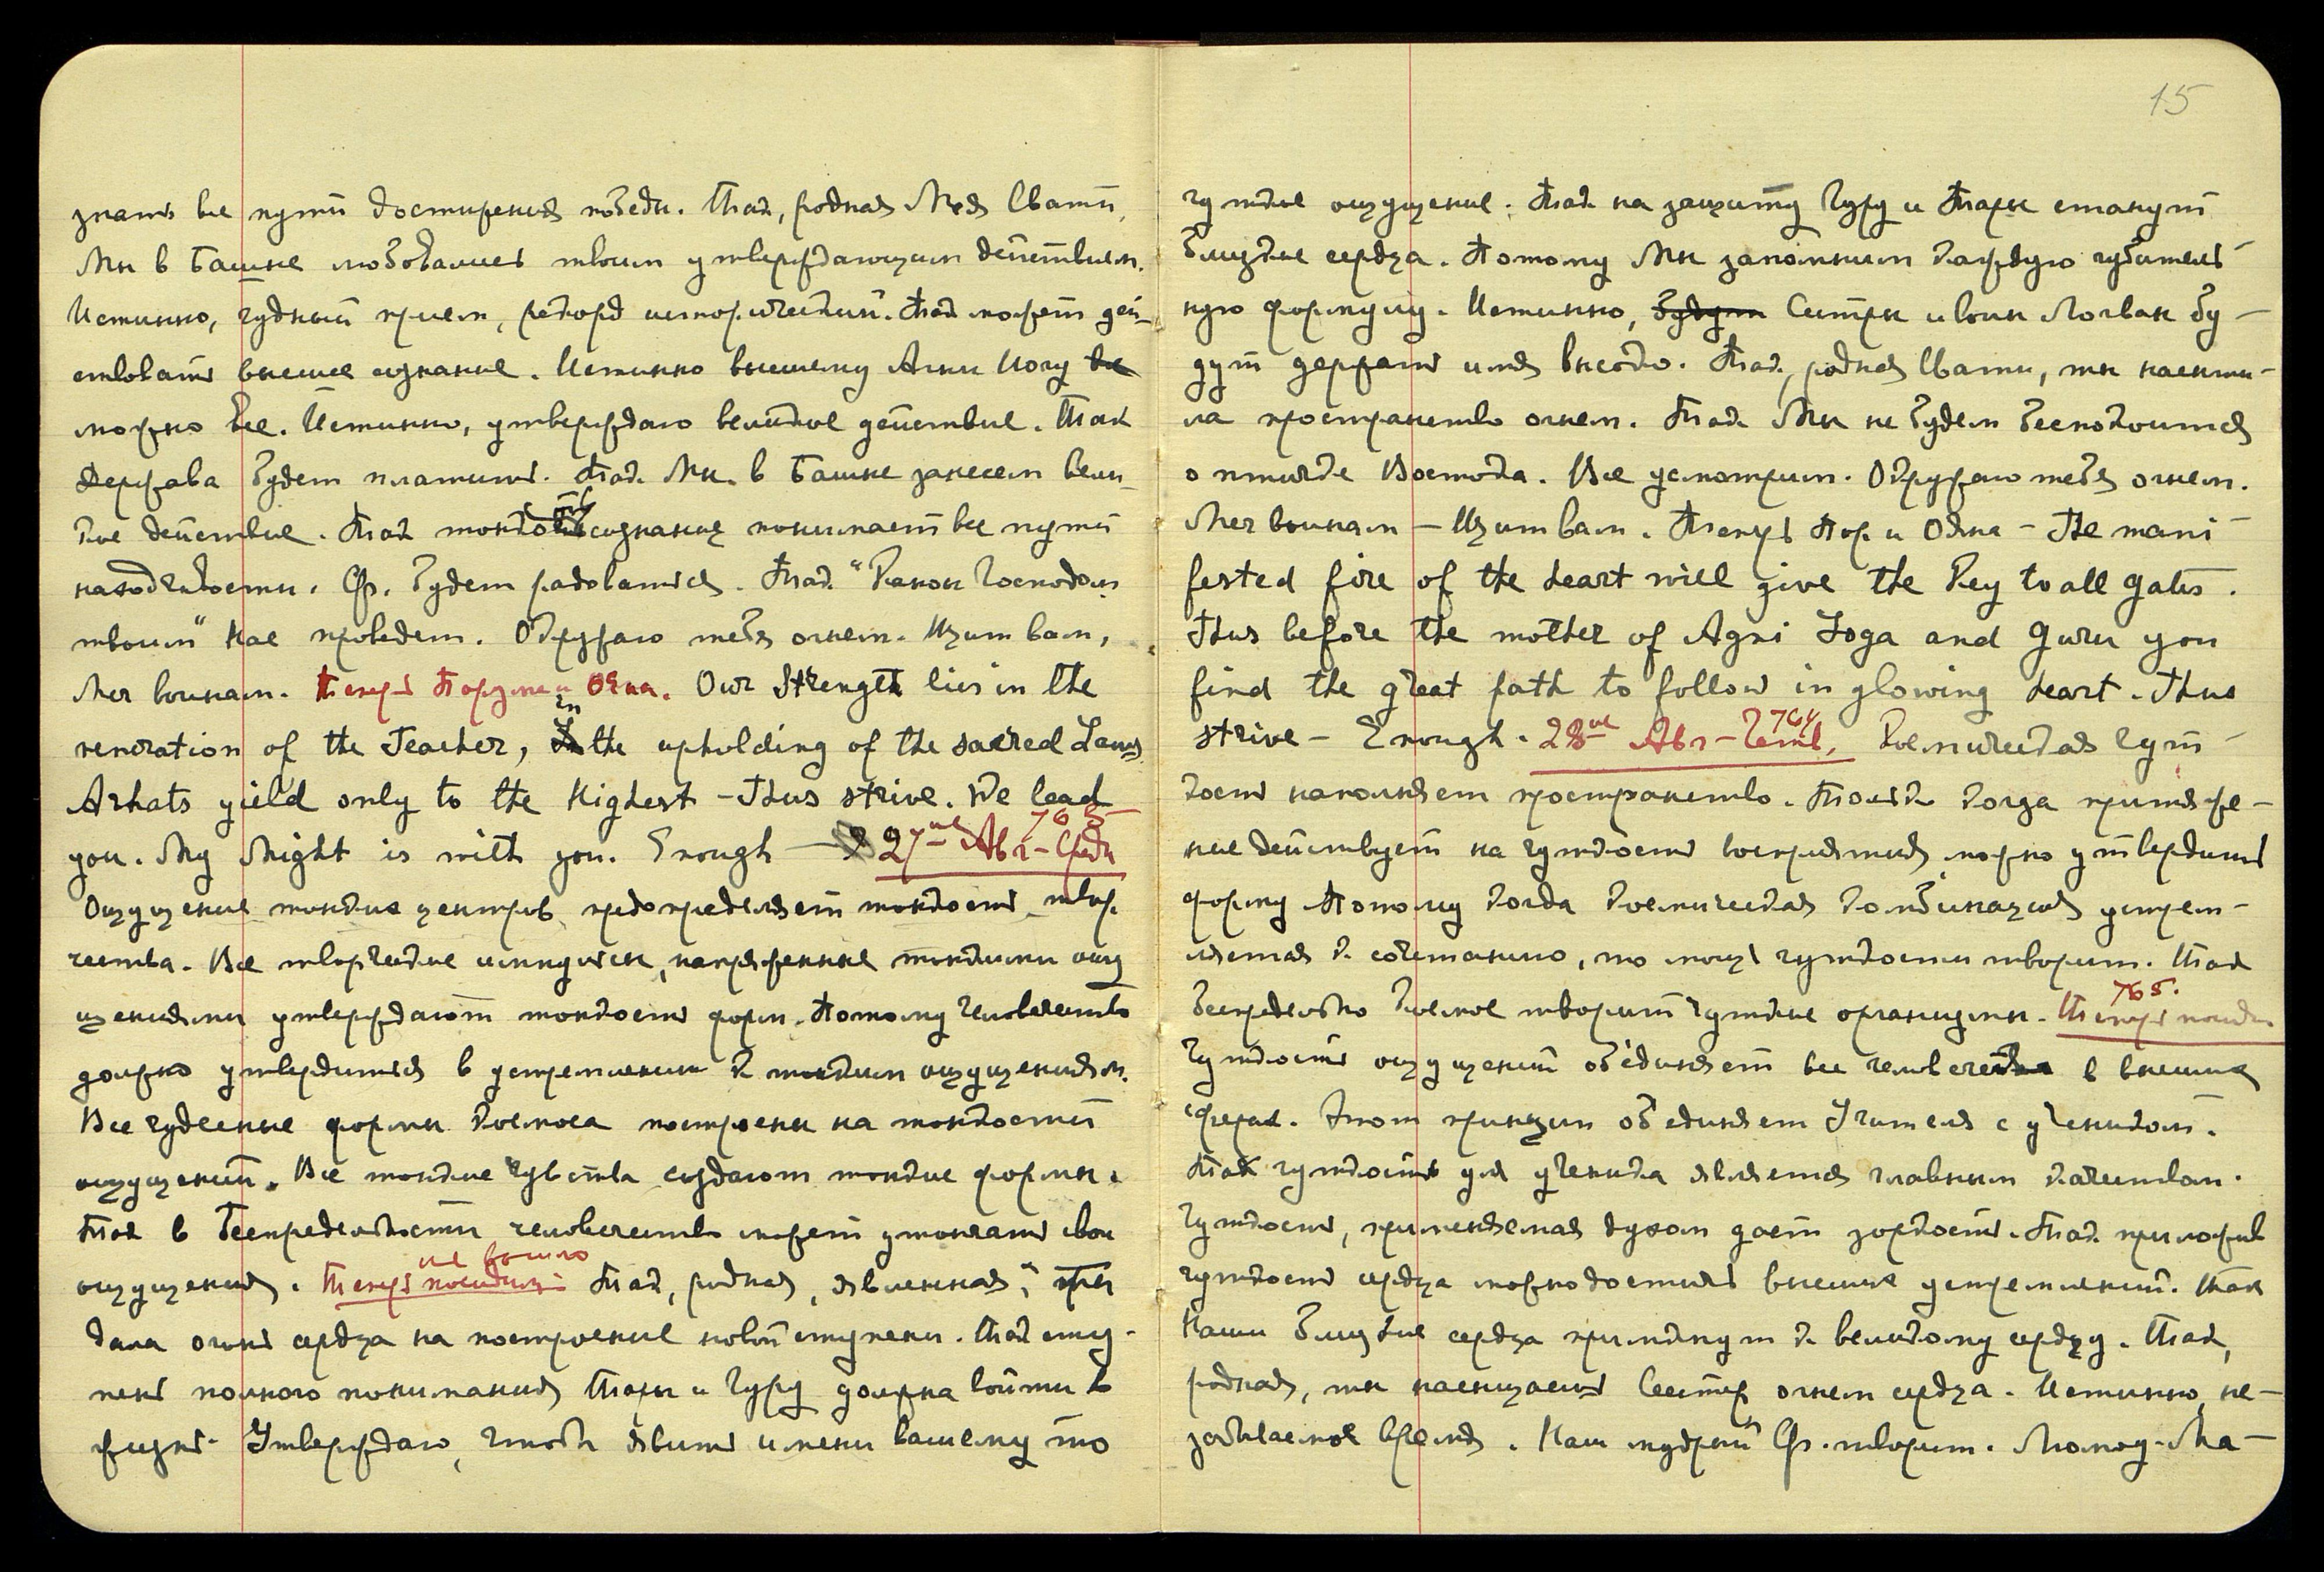 знать все пути достижения победы. Так, родная Моя Свати,
Мы в Башне любовались твоим утверждающим действием.
Истинно, чудный прием, рекорд исторический. Так может дей-
ствовать высшее сознание. Истинно высшему Агни Йогу все
можно все. Истинно, утверждаю великое действие. Так
держава будет платить. Так Мы в Башне занесем вели-
кое действие. Так тонкое сознание понимает все пути
находчивости. Ф. будет радоваться. Так "Канон Господом
твоим" нас проведет. Окружаю тебя огнем. Щит вам,
меч воинам. Теперь Порума и Ояна. Our Strength lies in the
veneration of the Teacher, In the upholding of the sacred Laws
Arhats yield only to the Highest - Thus strive. We lead
you. My Might is with you. Enough — 27-ое Авг - Среда 763
Ощущение тонких центров предопределяет тонкость твор-
чества. Все творческие импульсы, напряженные тонкими ощу-
щениями утверждают тонкость форм. Потому человечество
должно утвердиться в устремлении к тонким ощущениям.
Все чудесные формы Космоса построены на тонкости
ощущений. Все тонкие чувства создают тонкие формы.
Так в Беспредельности человечество может утончать свои
ощущения. не вошло
Теперь Так, родная, явленная, ты
дала огонь сердца на построение новой ступени. Так сту-
пень полного понимания Тары и Гуру должна войти в
жизнь. Утверждаю, чтобы явить имени вашему то
15
чуткое ощущение. Так на защиту Гуру и Тары станут
близкие сердца. Потому Мы запомним каждую губитель-
ную формулу. Истинно, будут Сестры и воин Логван бу-
дут держать имя высоко. Так, родная Свати, ты насыти-
ла пространство огнем. Так Мы не будем беспокоиться
о птичке Востока. Все усмотрим. Окружаю тебя огнем.
Меч воинам — Щит вам. Теперь Пор. и Ояна — The mani-
fested fire of the heart will give the Key to all gates.
Thus before the mother of Agni Yoga and Guru you
find the great path to follow in glowing heart. Thus
strive - Enough. 28-ое Авг - Четв. 764 Космическая чут-
кость наполняет пространство. Только когда притяже-
ние действует на чуткость восприятия, можно утвердить
форму. Потому когда космическая комбинация устрем-
ляется к сочетанию, то мощь чуткости творит. Так
беспредельно Космос творит чуткие организмы. 765. Теперь
Чуткость ощущений объединяет все человечество в высших
сферах. Этот принцип объединяет Учителя с учеником.
Так чуткость для ученика является главным качеством.
Чуткость, применяемая духом дает зоркость. Так приложив
чуткость сердца можно достичь высших устремлений. Так
Наши близкие сердца примкнут к великому сердцу. Так,
родная, ты насыщаешь Сестер огнем сердца. Истинно, не-
забываемое время. Наш мудрый Ф. творит. Люмоу - Ма-